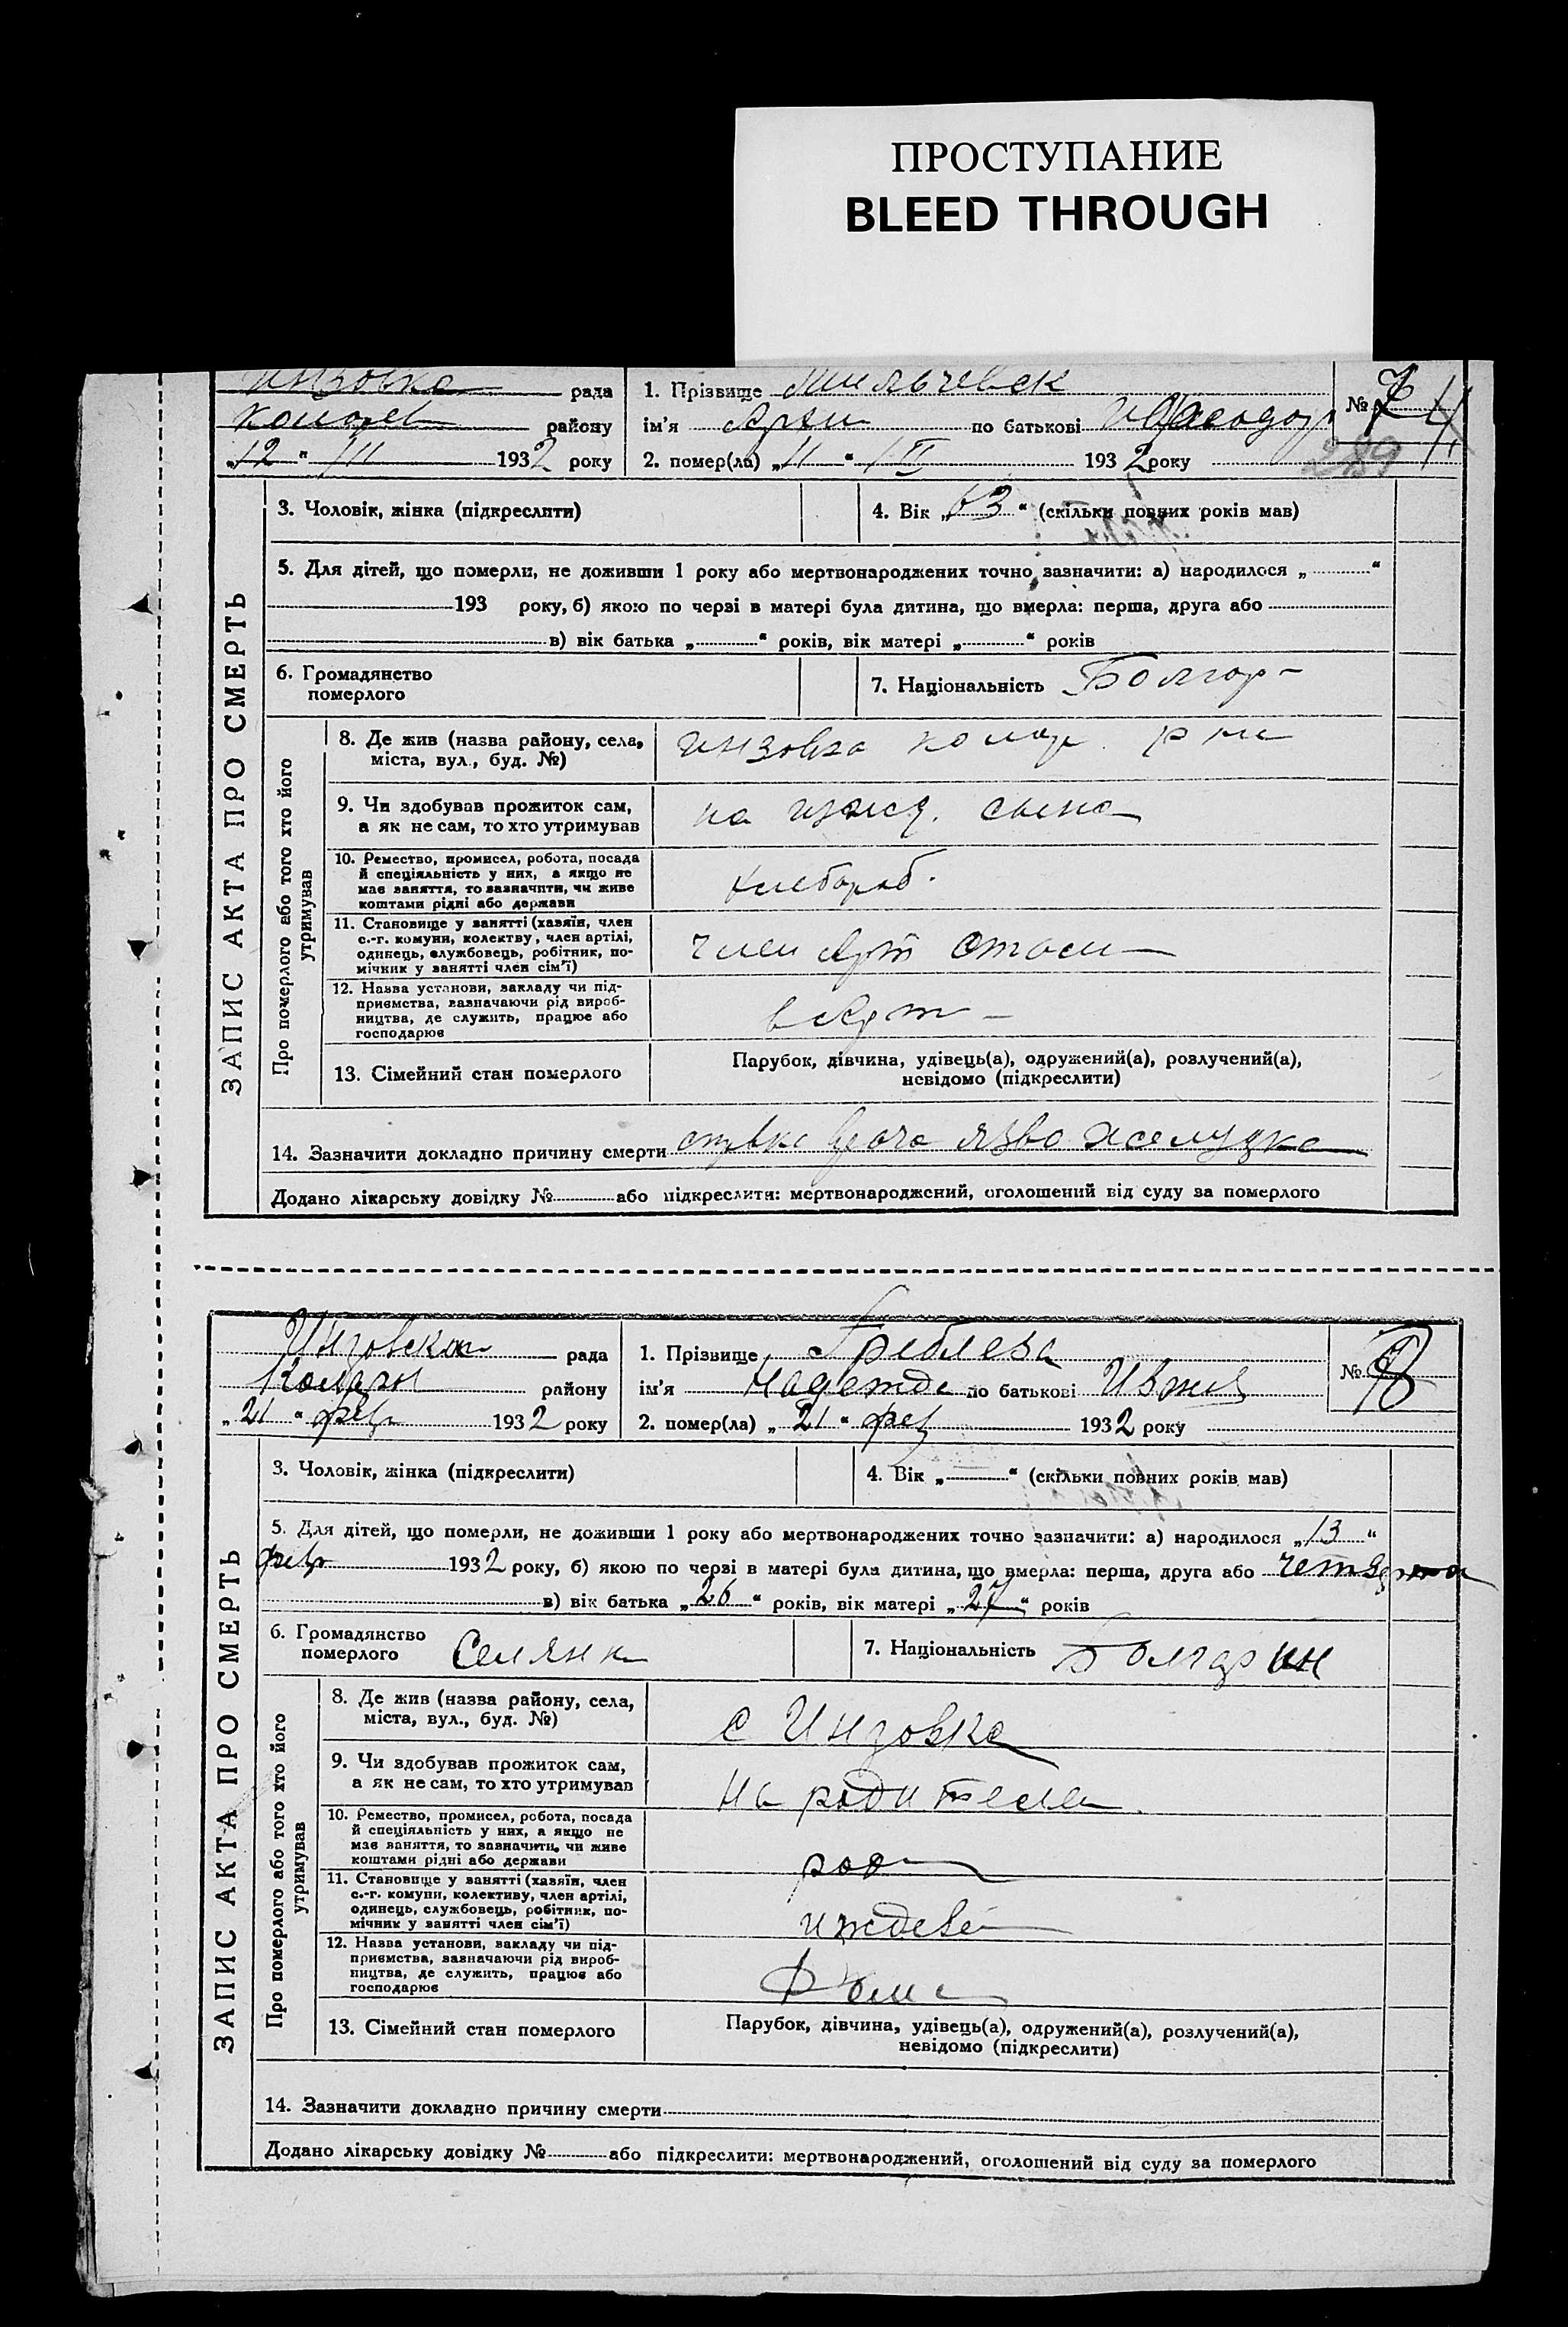 ПРОСТУПАНИЕ
BLEED THROUGH
рада
району
„12“ III 1932 року
1. Прізвище
ім'я по батькові
2. помер(ла) „11“ 1932 року
№ 7
289
ЗАПИС АКТА ПРО СМЕРТЬ
Про померлого або того хто його утримував
3. Чоловік, жінка (підкреслити)
4. Вік „63“ (скільки повних років мав)
5. Для дітей, що померли, не доживши 1 року або мертвонароджених точно зазначити: а) народилося „ “
193 року, б) якою по черзі в матері була дитина, що вмерла: перша, друга або
в) вік батька „ “ років, вік матері „ “ років
6. Громадянство
померлого
7. Національність Болгар
8. Де жив (назва району, села,
міста, вул., буд. №)
Инзовка
9. Чи здобував прожиток сам,
а як не сам, то хто утримував
на ижд. сына
10. Ремество, промисел, робота, посада
й спеціяльність у них, а якщо не
має заняття, то зазначити, чи живе
коштами рідні або держави
хлебороб.
11. Становище у занятті (хазяїн, член
с.-г. комуни, колектву, член артілі,
одинець, службовець, робітник, по-
мічник у занятті член сім'ї)
член
12. Назва установи, закладу чи під-
приємства, зазначаючи рід вироб-
ництва, де служить, працює або
господарює
13. Сімейний стан померлого
Парубок, дівчина, удівець(а), одружений(а), розлучений(а),
невідомо (підкреслити)
14. Зазначити докладно причину смерти язва желудка
Додано лікарську довідку № або підкреслити: мертвонароджений, оголошений від суду за померлого
Инзовская рада
району
„21“ фев 1932 року
1. Прізвище Греблева
ім'я Надежда по батькові
2. помер(ла) „21“ фев 1932 року
№ 8
ЗАПИС АКТА ПРО СМЕРТЬ
Про померлого або того хто його утримував
3. Чоловік, жінка (підкреслити)
4. Вік „ “ (скільки повних років мав)
5. Для дітей, що померли, не доживши 1 року або мертвонароджених точно зазначити: а) народилося „13“
фев 1932 року, б) якою по черзі в матері була дитина, що вмерла: перша, друга або
в) вік батька „26“ років, вік матері „27“ років
6. Громадянство
померлого
7. Національність Болгарин
8. Де жив (назва району, села,
міста, вул., буд. №)
с Инзовка
9. Чи здобував прожиток сам,
а як не сам, то хто утримував
на родителе
10. Ремество, промисел, робота, посада
й спеціяльність у них, а якщо не
має заняття, то зазначити, чи живе
коштами рідні або держави
11. Становище у занятті (хазяїн, член
с.-г. комуни, колективу, член артілі,
одинець, службовець, робітник, по-
мічник у занятті член сім'ї)
12. Назва установи, закладу чи під-
приємства, зазначаючи рід вироб-
ництва, де служить, працює або
господарює
13. Сімейний стан померлого
Парубок, дівчина, удівець(а), одружений(а), розлучений(а),
невідомо (підкреслити)
14. Зазначити докладно причину смерти
Додано лікарську довідку № або підкреслити: мертвонароджений, оголошений від суду за померлого